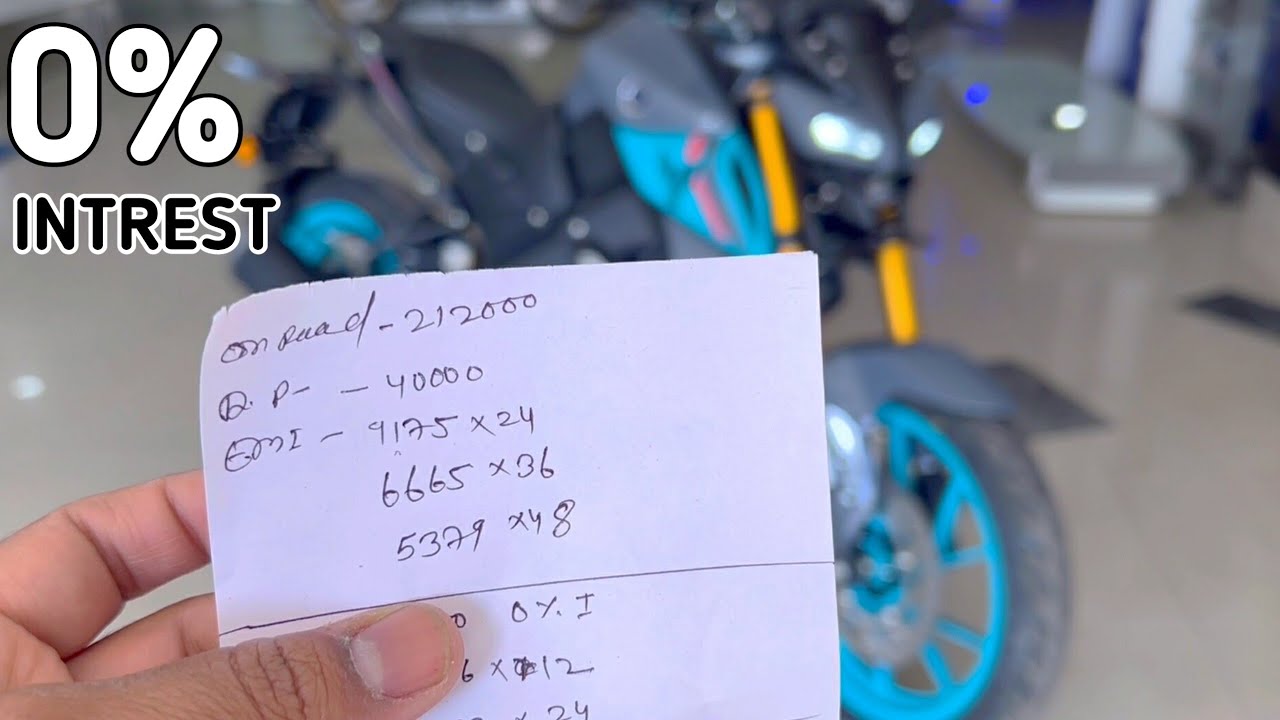 0%
INTREST
on Road - 212000
D.P- - 40000
EMI - 9175 x 24
6665 x 36
5379 x 48
0 0 %. I
6 x 12
x 24